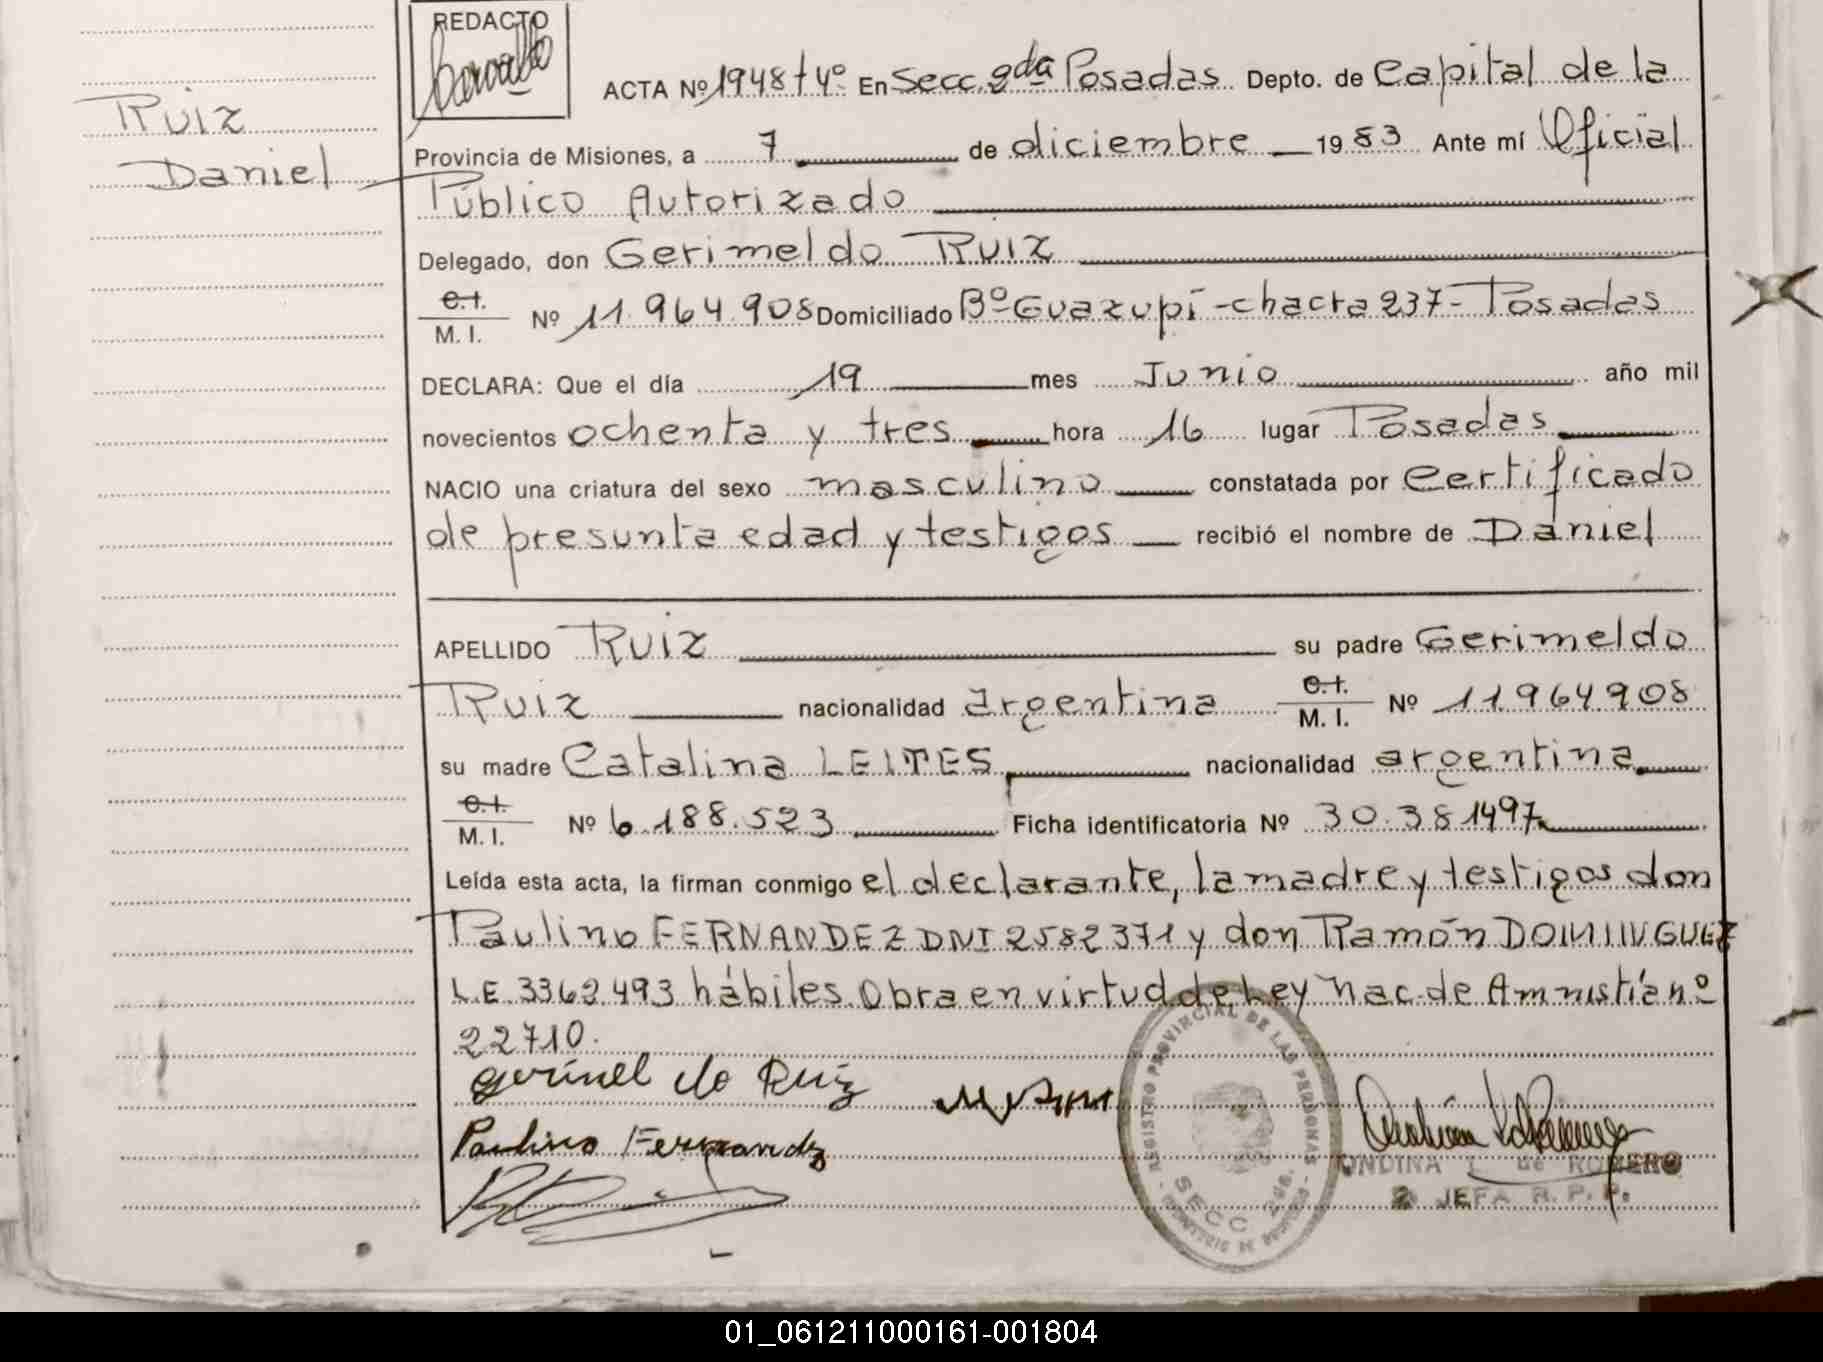 REDACTO
Ruiz
Daniel
ACTA Nº 1948 t 4º En Secc. 2da Posadas Depto. de Capital de la
Provincia de Misiones, a 7 de diciembre 1983 Ante mí Oficial
Público Autorizado
Delegado, don Gerimeldo Ruiz
C.I.
M. I. Nº 11.964.908 Domiciliado Bº Guazupi - chacra 237 - Posadas
DECLARA: Que el día 19 mes Junio año mil
novecientos ochenta y tres hora 16 lugar Posadas
NACIO una criatura del sexo masculino constatada por Certificado
de presunta edad y testigos recibió el nombre de Daniel
APELLIDO Ruiz su padre Gerimeldo
Ruiz nacionalidad argentina C.I. M. I. Nº 11.964.908
su madre Catalina LEITES nacionalidad argentina
C.I.
M. I. Nº 6.188.523 Ficha identificatoria Nº 30.381497
Leída esta acta, la firman conmigo el declarante, la madre y testigos don
Paulino FERNANDEZ DNI 2582371 y don Ramón DOMINGUEZ
L.E. 3362.493 hábiles. Obra en virtud de Ley Nac. de Amnistía nº
22710.
gerimel do Ruiz
Paulino Fernandz
REGISTRO PROVINCIAL DE LAS PERSONAS
SECC
ONDINA de ROMERO
JEFA R. P. P.
01_061211000161-001804